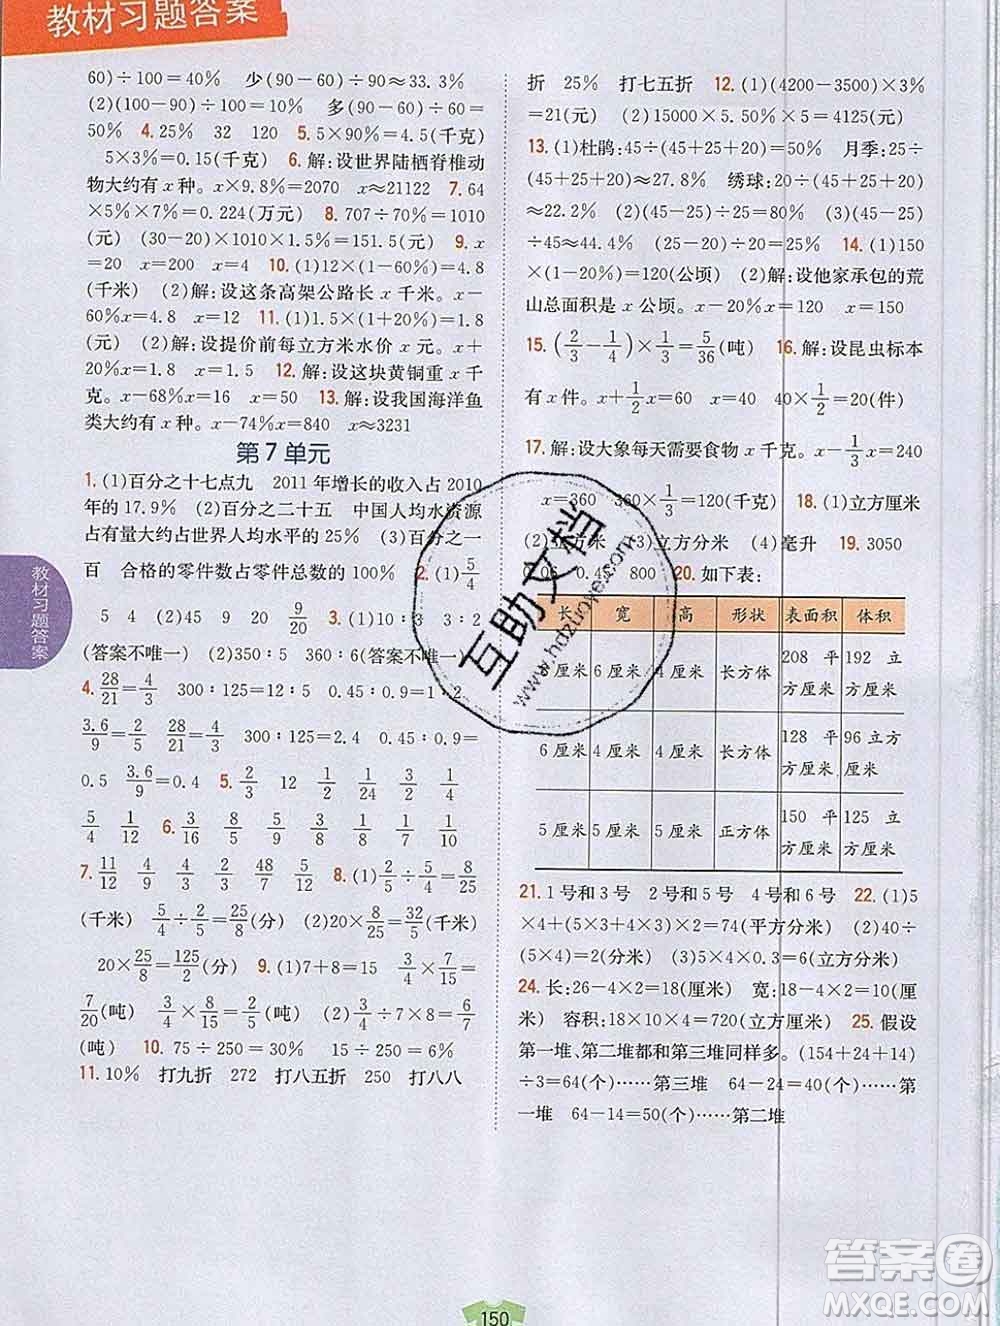 教材习题答案
60)÷100=40%　少(90-60)÷90≈33.3%
(2)(100-90)÷100=10%　多(90-60)÷60=
50%　4.25%　32　120　5.5×90%=4.5(千克)
5×3%=0.15(千克)　6.解:设世界陆栖脊椎动
物大约有x种。x×9.8%=2070　x≈21122　7.64
×5%×7%=0.224(万元)　8.707÷70%=1010
(元)　(30-20)×1010×1%=151.5(元)　9.x
=20　x=200　x=4　10.(1)12×(1-60%)=4.8
(千米)　(2)解:设这条高架公路长x千米。x-
60%x=4.8　x=12　11.(1)1.5×(1+20%)=1.8
(元)　(2)解:设提价前每立方米水价x元。x+
20%x=1.8　x=1.5　12.解:设这块黄铜重x千
克。x-68%x=16　x=50　13.解:设我国海洋鱼
类大约有x种。x×70%=2262　x≈3231
第7单元
1.(1)百分之十七点九　2011年增长的收入占2010
年的17.9%　(2)百分之二十五　中国人均水资源
占有量大约占世界人均水平的25%　(3)百分之一
百　合格的零件数占零件总数的100%　2.(1)5/4
5　4　(2)45　9　20　9/20　3.(1)10:3　3:2
(答案不唯一)　(2)350:5　360:6(答案不唯一)
4.28/21=4/3　300:125=12:5　0.45:0.9=1:2
3.6/9=2/5　28/21=4/3　300:125=2.4　0.45:0.9=
0.5　3.6/9=0.4　5.2/3　12　1/12　1/24　8/9　6/5
5/4　1/12　6.3/16　5/8　9/20　3/8　1/4　4/9　2/3
7.11/12　4/9　3/4　2/3　48/7　5/12　8.(1)2/5÷5/4=8/25
(千米)　5/4÷2/5=25/8(分)　(2)20×8/25=32/5(千米)
20×25/8=125/2(分)　9.(1)7+8=15　3/4×7/15=
7/20(吨)　3/4×8/15=2/5(吨)　(2)3/4÷7×8=6/7
(吨)　10.75÷250=30%　15÷250=6%
11.10%　打九折　272　打八五折　250　打八八
折　25%　打七五折　12.(1)(4200-3500)×3%
=21(元)　(2)15000×5.5%×5=4125(元)
13.(1)杜鹃:45÷(45+25+20)=50%　月季:25÷
(45+25+20)≈27.8%　绣球:20÷(45+25+20)
≈22.2%　(2)(45-25)÷25=80%　(3)(45-25)
÷45≈44.4%　(4)(25-20)÷20=25%　14.(1)150
×(1-20%)=120(公顷)　(2)解:设他家承包的荒
山总面积是x公顷。x-20%x=120　x=150
15.(2/3-1/4)×1/3=5/36(吨)　16.解:设昆虫标本
有x件。x+1/2x=60　x=40　40×1/2=20(件)
17.解:设大象每天需要食物x千克。x-1/3x=240
x=360　360×1/3=120(千克)　18.(1)立方厘米
(2)立方米　(3)立方分米　(4)毫升　19.3050
0.06　0.45　800　20.如下表:
长　宽　高　形状　表面积　体积
8厘米　6厘米　4厘米　长方体　208平方厘米　192立方厘米
6厘米　4厘米　4厘米　长方体　128平方厘米　96立方厘米
5厘米　5厘米　5厘米　正方体　150平方厘米　125立方厘米
21.1号和3号　2号和5号　4号和6号　22.(1)5
×4+(5×3+4×3)×2=74(平方分米)　(2)40÷
(5×4)=2(分米)　(3)5×4×0.3=6(立方分米)
24.长:26-4×2=18(厘米)　宽:18-4×2=10(厘
米)　容积:18×10×4=720(立方厘米)　25.假设
第一堆、第二堆都和第三堆同样多。(154+24+14)
÷3=64(个)……第三堆　64-24=40(个)……第
一堆　64-14=50(个)……第二堆
教材习题答案
150
互助文档
www.hdzuoye.com
答案圈
MXQE.COM